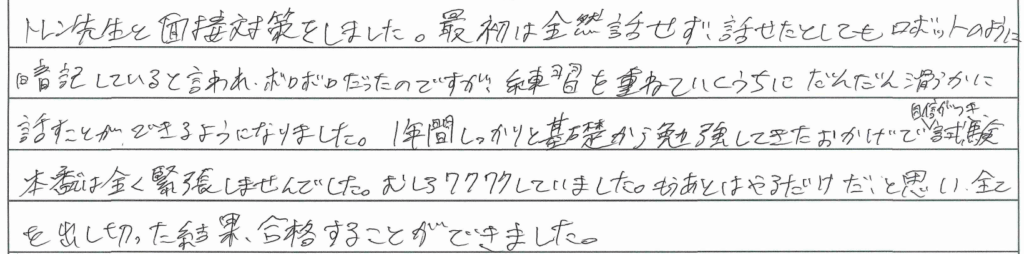 トレン先生と面接対策をしました。最初は全然話せず、話せたとしてもロボットのように
暗記していると言われ、ボロボロだったのですが、練習を重ねていくうちにだんだん滑らかに
話すことができるようになりました。1年間しっかりと基礎から勉強してきたおかげで自信がつき、試験
本番は全く緊張しませんでした。むしろワクワクしていました。もうあとはやるだけだ、と思い、全て
を出し切った結果、合格することができました。